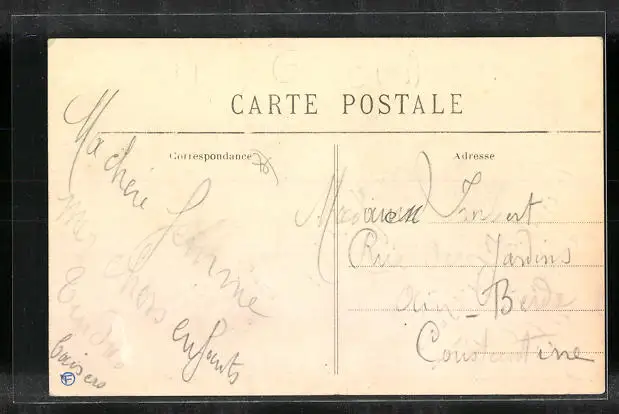 CARTE POSTALE
Correspondance
Ma chère femme
mes chers enfants
baisers
Adresse
Madame Imbert
Rue des Jardins
Aïn-Beïda
Constantine